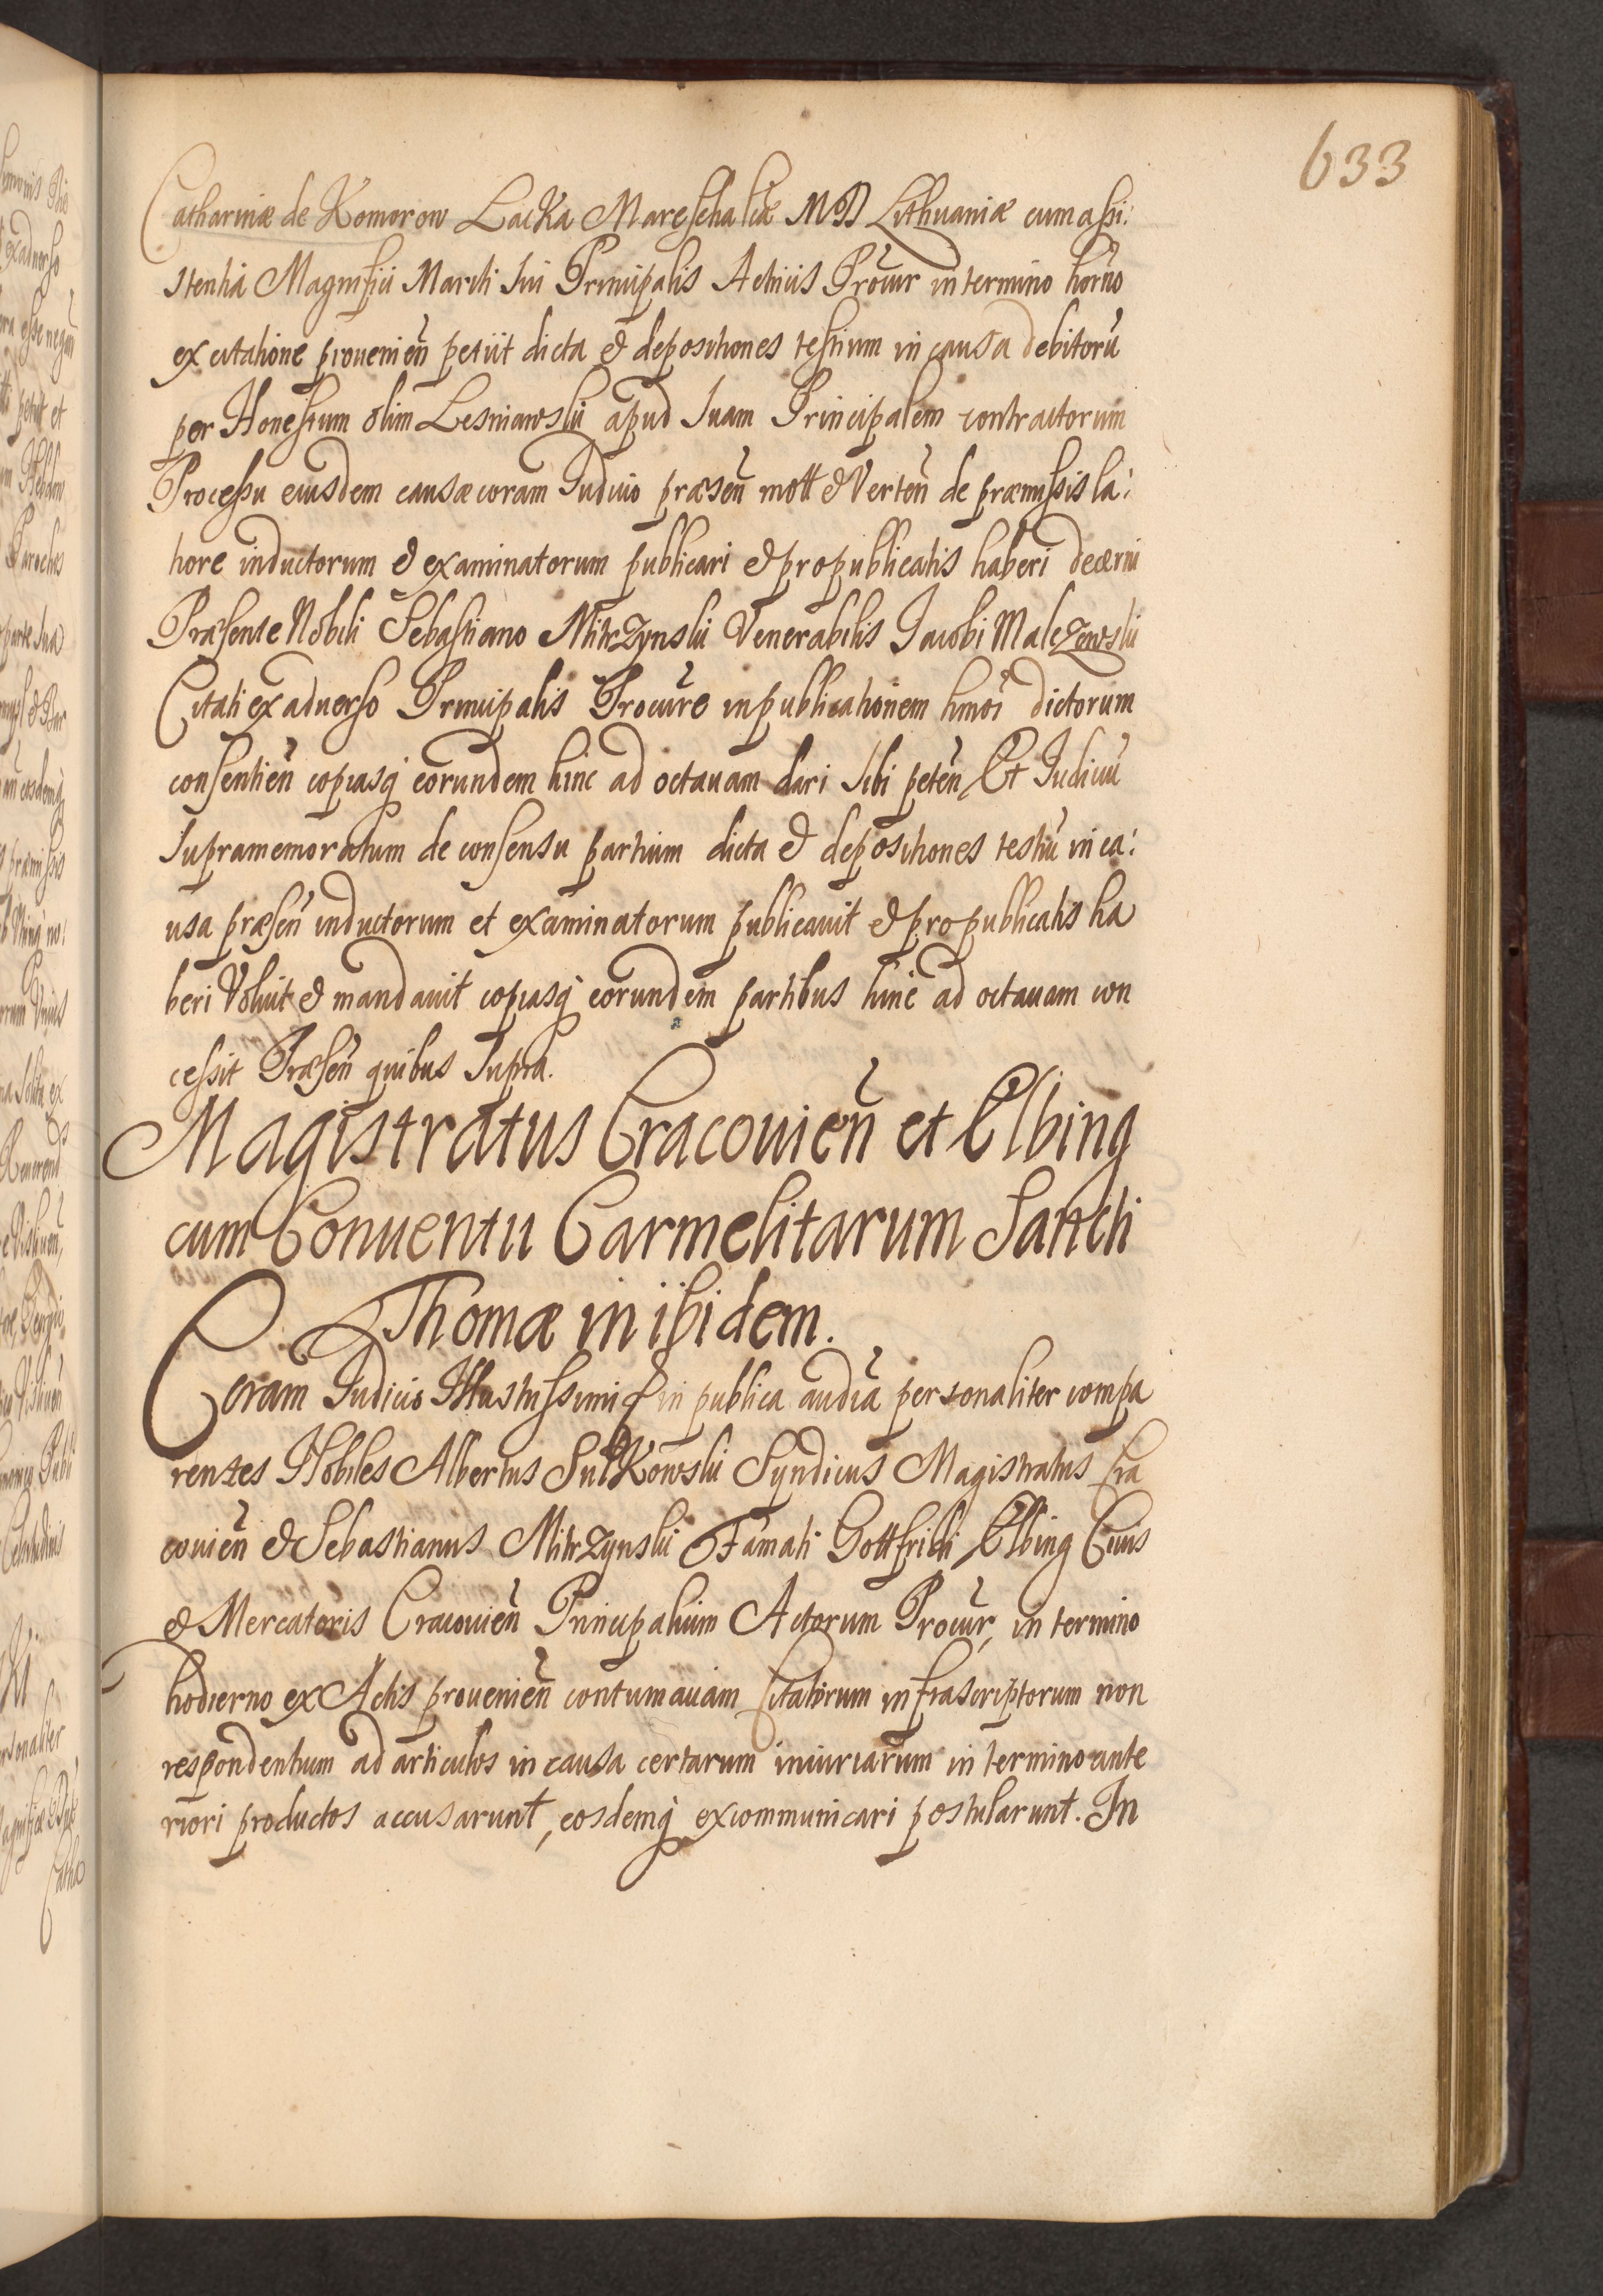 633
Catharinæ de Komorow Lacka Mareschalcæ M D Lithuaniæ cum assi:
stentia Magnifici Mariti sui Principalis Actricis Procūr in termino horno
ex citatione prouenien̄ petiit dicta & depositiones testium in causa debitorū
per Honestum olim Lesniawski apud suam Principalem contractorum
Processu eiusdem causæ coram Judicio præsen̄ mott & Verten̄ de præmissis la:
hore inductorum & examinatorum publicari & pro publicatis haberi decerni
Præsente Nobili Sebastiano Mitrzynski Venerabilis Jacobi Malczewski
Citati ex aduerso Principalis Procure in publicationem hmōi dictorum
consentien̄ copiasq̨ eorundem hinc ad octauam dari sibi peten̄ Et Judiciū
supramemoratum de consensu partium dicta & depositiones testiū in ca:
usa præsen̄ inductorum et examinatorum publicauit & pro publicatis ha
beri Voluit & mandauit copiasq̨ eorundem partibus hinc ad octauam con
cessit Præsen̄ quibus supra.
Magistratus Cracouien̄ et Elbing
cum Conuentu Carmelitarum Sancti
Thomæ in ibidem.
Coram Judicio Illustrissimi & in publica audīa personaliter compa
rentes Nobiles Albertus Sulkowski Syndicus Magistratus Cra
couien̄ & Sebastianus Mitrzynski Famati Gottfridi Elbing Ciuis
& Mercatoris Cracouien̄ Principalium Actorum Procūr, in termino
hodierno ex Actis prouenien̄ contumaciam Citatorum infrascriptorum non
respondentium ad articulos in causa certarum iniuriarum in termino ante
riori productos accusarunt, eosdemq̨ excommunicari postularunt. In